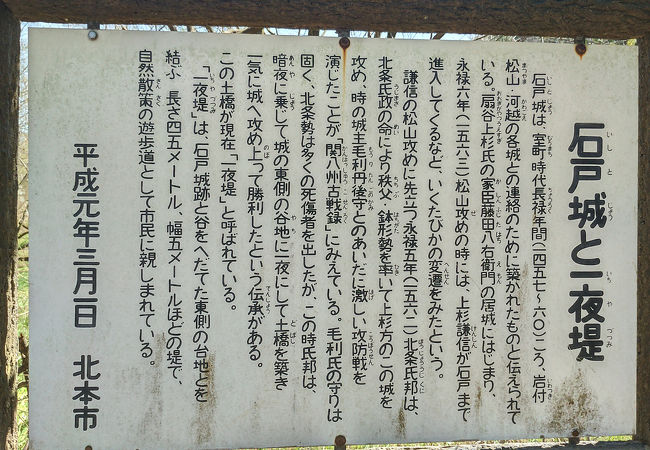 石戸城と一夜堤
石戸城は、室町時代長禄年間(一四五七〜六〇)ごろ、岩付
松山・河越の各城との連絡のために築かれたものと伝えられて
いる。扇谷上杉氏の家臣藤田八右衛門の居城にはじまり、
永禄六年(一五六三)松山攻めの時には、上杉謙信が石戸まで
進入してくるなど、いくたびかの変遷をみたという。
謙信の松山攻めに先立つ永禄五年(一五六二)北条氏邦は、
北条氏政の命により秩父・鉢形勢を率いて上杉方のこの城を
攻め、時の城主毛利丹後守とのあいだに激しい攻防戦を
演じたことが、「関八州古戦録」にみえている。毛利氏の守りは
固く、北条勢は多くの死傷者を出したが、この時氏邦は、
暗夜に乗じて城の東側の谷地に一夜にして土橋を築き
一気に城へ攻め上って勝利したという伝承がある。
この土橋が現在「一夜堤」と呼ばれている。
「一夜堤」は、石戸城跡と谷をへだてた東側の台地とを
結ぶ長さ四五メートル、幅五メートルほどの堤で、
自然散策の遊歩道として市民に親しまれている。
平成元年三月一日 北本市